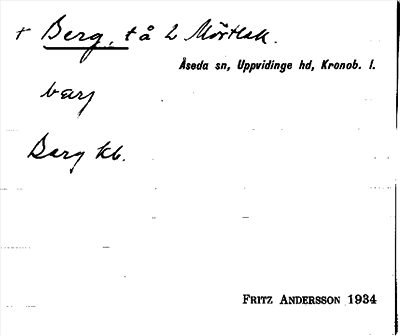 † Berg, t å L Mörtlek.
Åseda sn, Uppvidinge hd, Kronob. l.
bærj
Barg kb.
FRITZ ANDERSSON 1934